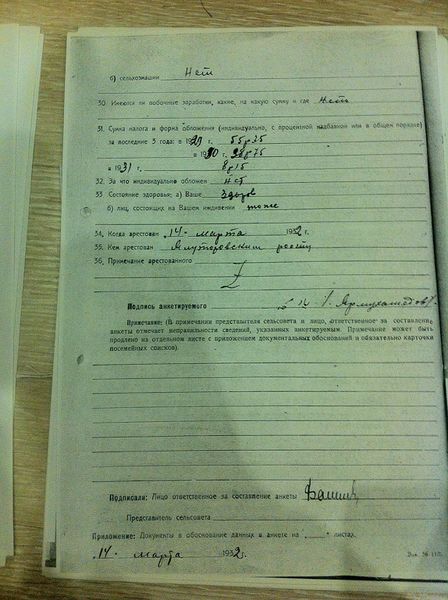 б) сельхозмашин Нет
30. Имеются ли побочные заработки, какие, на какую сумму и где Нет
31. Сумма налога и форма обложения (индивидуально, с процентной надбавкой или в общем порядке)
за последние 3 года: в 1929 г. 55р35
в 1930 г. 38р75
в 1931 г. 8р15
32. За что индивидуально обложен Нет
33. Состояние здоровья: а) Ваше Здоров
б) лиц, состоящих на Вашем иждивении тоже
34. Когда арестован 14 - марта 1932 г.
35. Кем арестован Ялуторовским
36. Примечание арестованного
Подпись анкетируемого Ярмухамедов
Примечание: (В примечании представителя сельсовета и лицо, ответственное за составление
анкеты отмечает неправильности сведений, указанных анкетируемым. Примечание может быть
продлено на отдельном листе с приложением документальных обоснований и обязательно карточки
посемейных списков).
Подписали: Лицо ответственное за составление анкеты
Представитель сельсовета
Приложение: Документы в обоснование данных в анкете на листах.
14 - марта 1932 г.